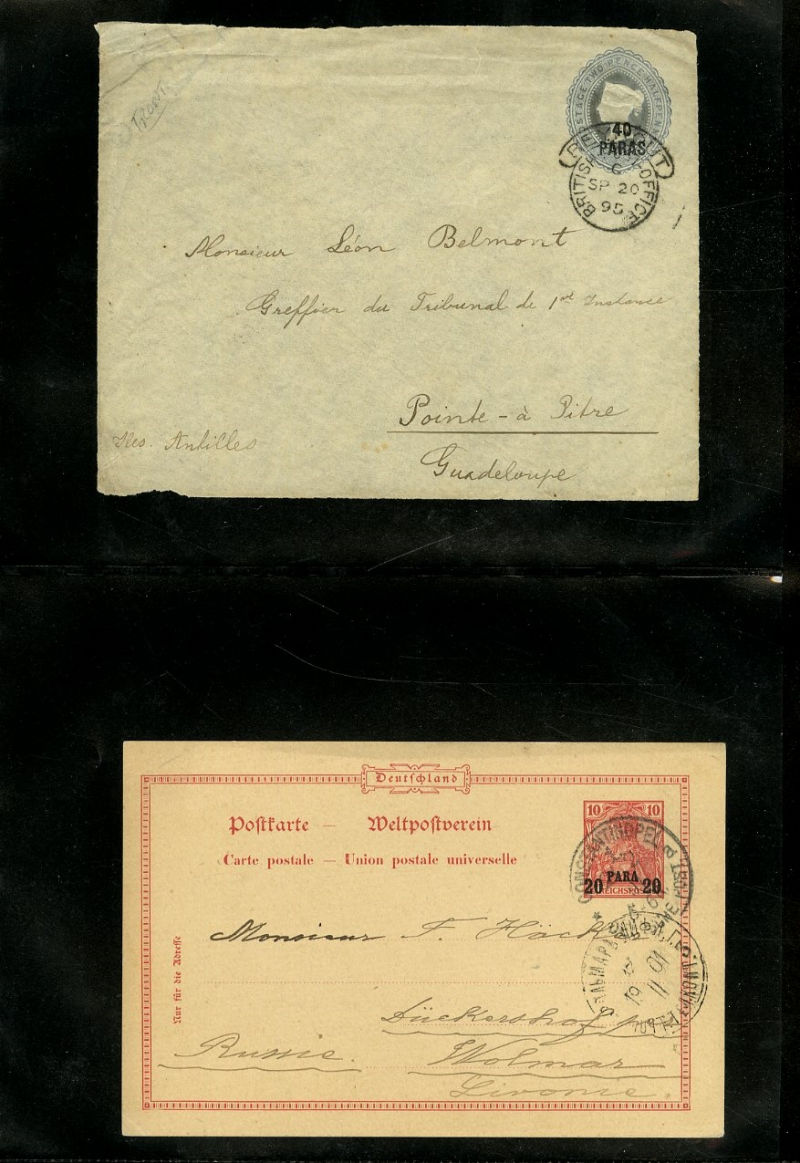 Front
POSTAGE TWO PENCE HALFPENNY
40
PARAS
BRITISH POST OFFICE BEYROUT
C
SP 20
95
Monsieur Léon Belmont
Greffier du Tribunal de 1re Instance
Pointe-à Pitre
Iles. Antilles
Guadeloupe
Deutschland
Postkarte — Weltpostverein
Carte postale — Union postale universelle
10 10
REICHSPOST
20 PARA 20
CONSTANTINOPEL
ВОЛЬМАРЪ
11 01
Nur für die Adresse
Monsieur F. Häck
Dückershof
Russie. Wolmar
Livonie.